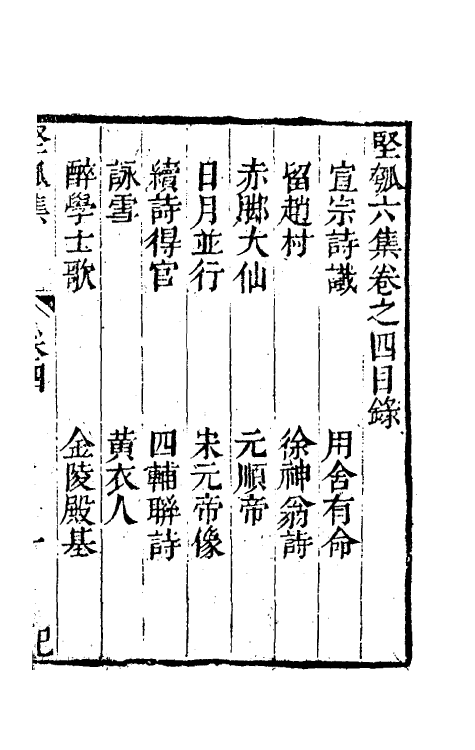 堅瓠六集卷之四目錄
宣宗詩讖　用舍有命
留趙村　徐神翁詩
赤脚大仙　元順帝
日月並行　宋元帝像
續詩得官　四輔聯詩
詠雪　黃衣人
醉學士歌　金陵殿基
堅瓠集　卷四